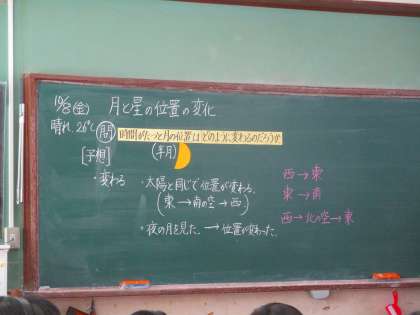 10/8(金) 月と星の位置の変化
晴れ 26℃
問 時間がたつと月の位置はどのように変わるのだろうか
[予想] (半月)
・変わる
・太陽と同じで位置が変わる。
(東→南の空→西)
・夜の月を見た。→位置が変わった。
西→東
東→南
西→北の空→東